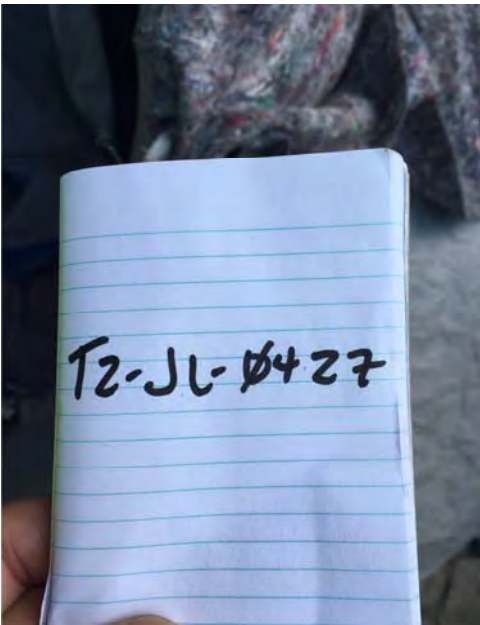 T2-JL-Ø427